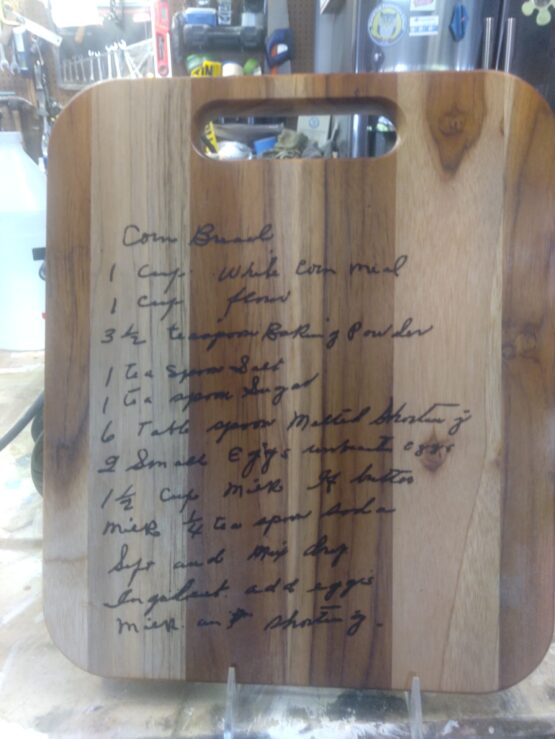 Corn Bread
1 Cup White Corn meal
1 Cup flour
3 ½ teaspoon Baking Powder
1 tea spoon Salt
1 tea spoon Sugar
6 Table spoon Melted Shortenig
2 Small Eggs eggs
1 ½ Cup Milk If butter
milk ¼ tea spoon soda
and mix dry
add eggs
milk shortenig.